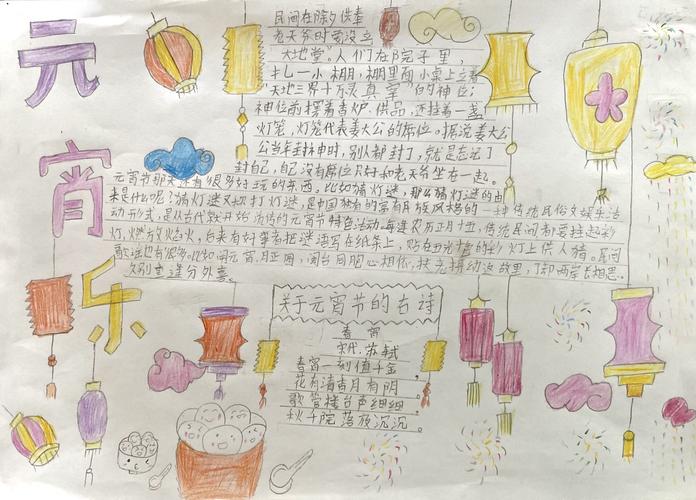 元
宵
乐
民间在除夕供奉
老天爷时要设立
天地堂。人们在院子里，
扎一小棚，棚里面小桌上立着
"天地三界十方灵真宰"的神位；
神位前摆着香炉、供品，还挂着一盏
灯笼，灯笼代表姜太公的席位。据说姜太公
当年封神时，别人都封了，就是忘记了
封自己，自己没有席位只好和老天爷坐在一起。
元宵节那天还有很多好玩的东西，比如猜灯谜，那么猜灯谜的由
来是什么呢？猜灯谜又称打灯谜，是中国独有的富有民族风格的一种传统民俗文娱活
动形式，是从古代就开始流传的元宵节特色活动。每逢农历正月十五，传统民间都要挂起彩
灯，燃放焰火，后来有好事者把谜语写在纸条上，贴在五光十色的彩灯上供人猜。民间
歌谣也有很多。比如闹元宵，月正圆，闽台同胞心相依，扶老携幼返故里，了却两岸长相思。
久别重逢分外喜。
关于元宵节的古诗
春宵
宋代：苏轼
春宵一刻值千金
花有清香月有阴
歌管楼台声细细
秋千院落夜沉沉。